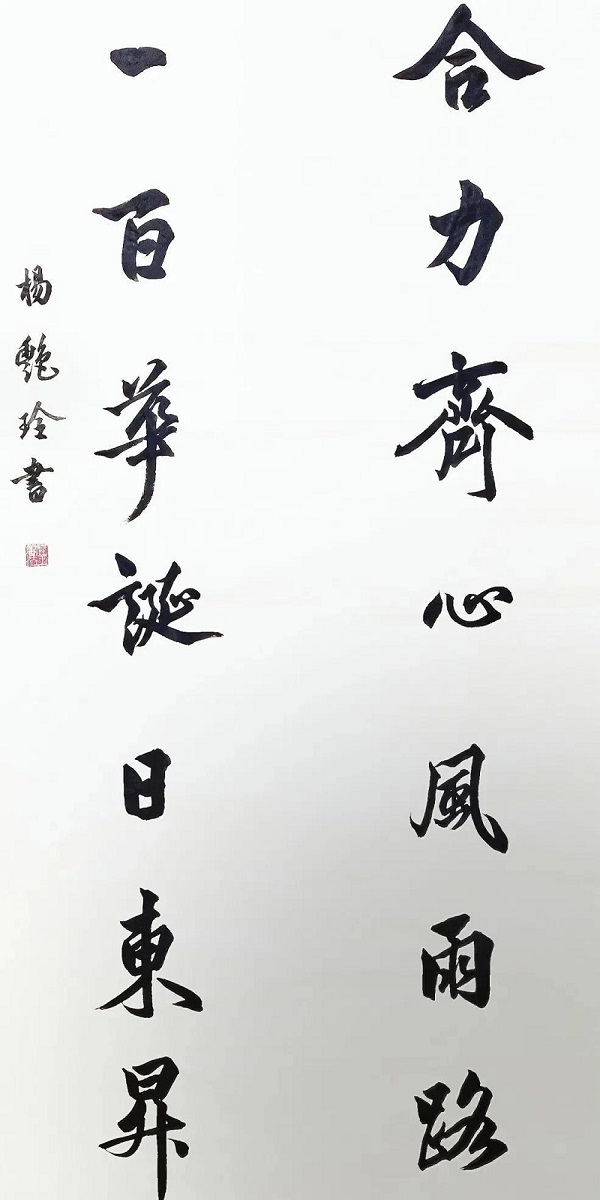 合力齊心風雨路
一百華誕日東昇
楊艷玲書